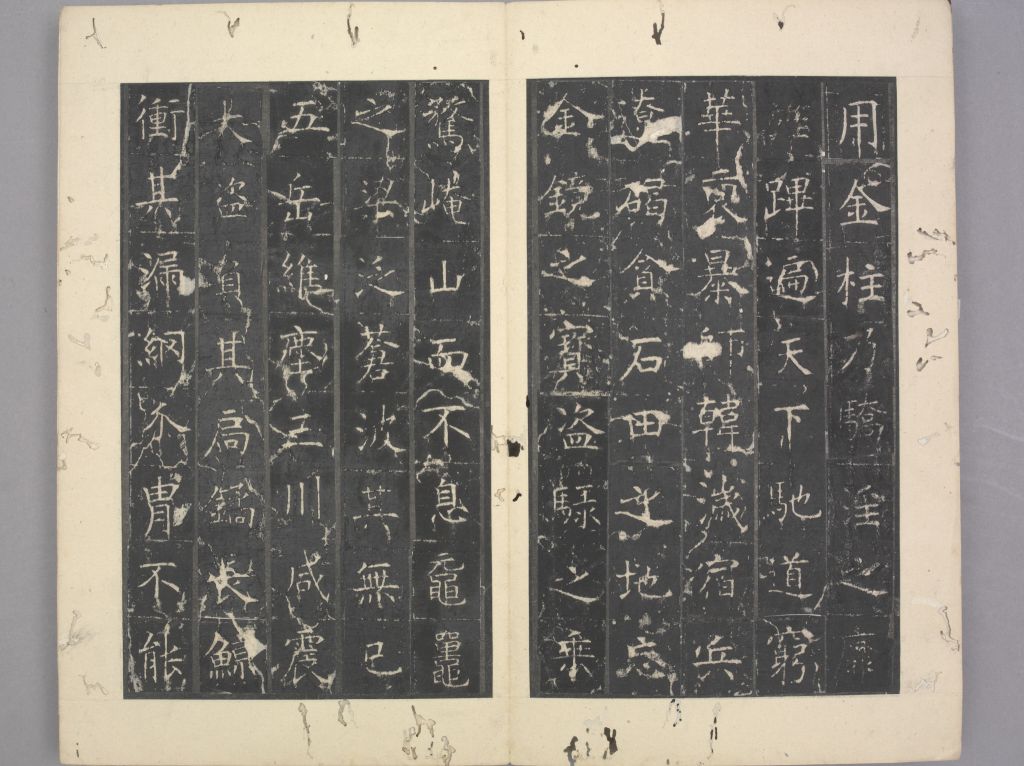 用金柱乃驕淫之靡
蹕遍天下馳道窮
華裔暴師韓滅宿兵
遼碣貪石田之地忘
金鏡之寶盜騄之乗
驚崦山而不息黿鼉
之梁泛蒼波其無已
五岳維塵三川咸震
大盜負其扃鐍長鯨
衝其漏網介胄不能